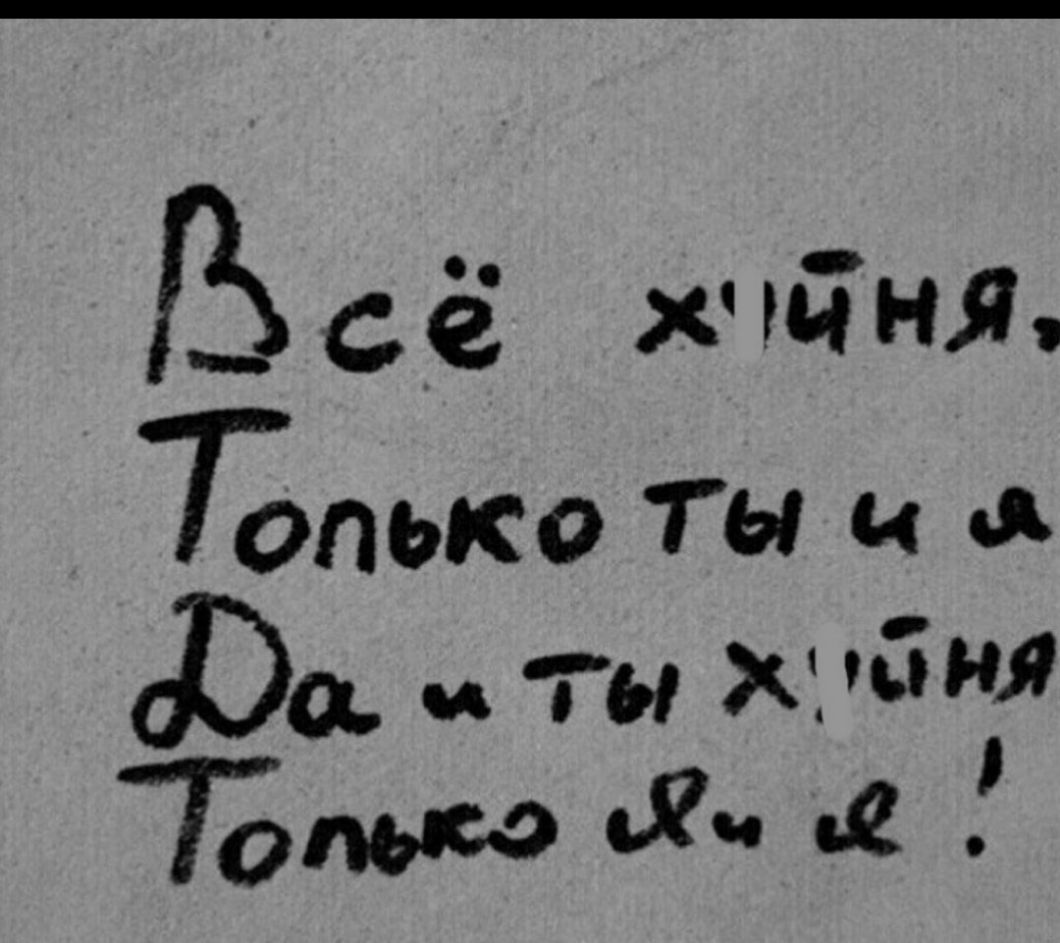 Всё хуйня,
Только ты и я
Да и ты хуйня
Только Я и я!